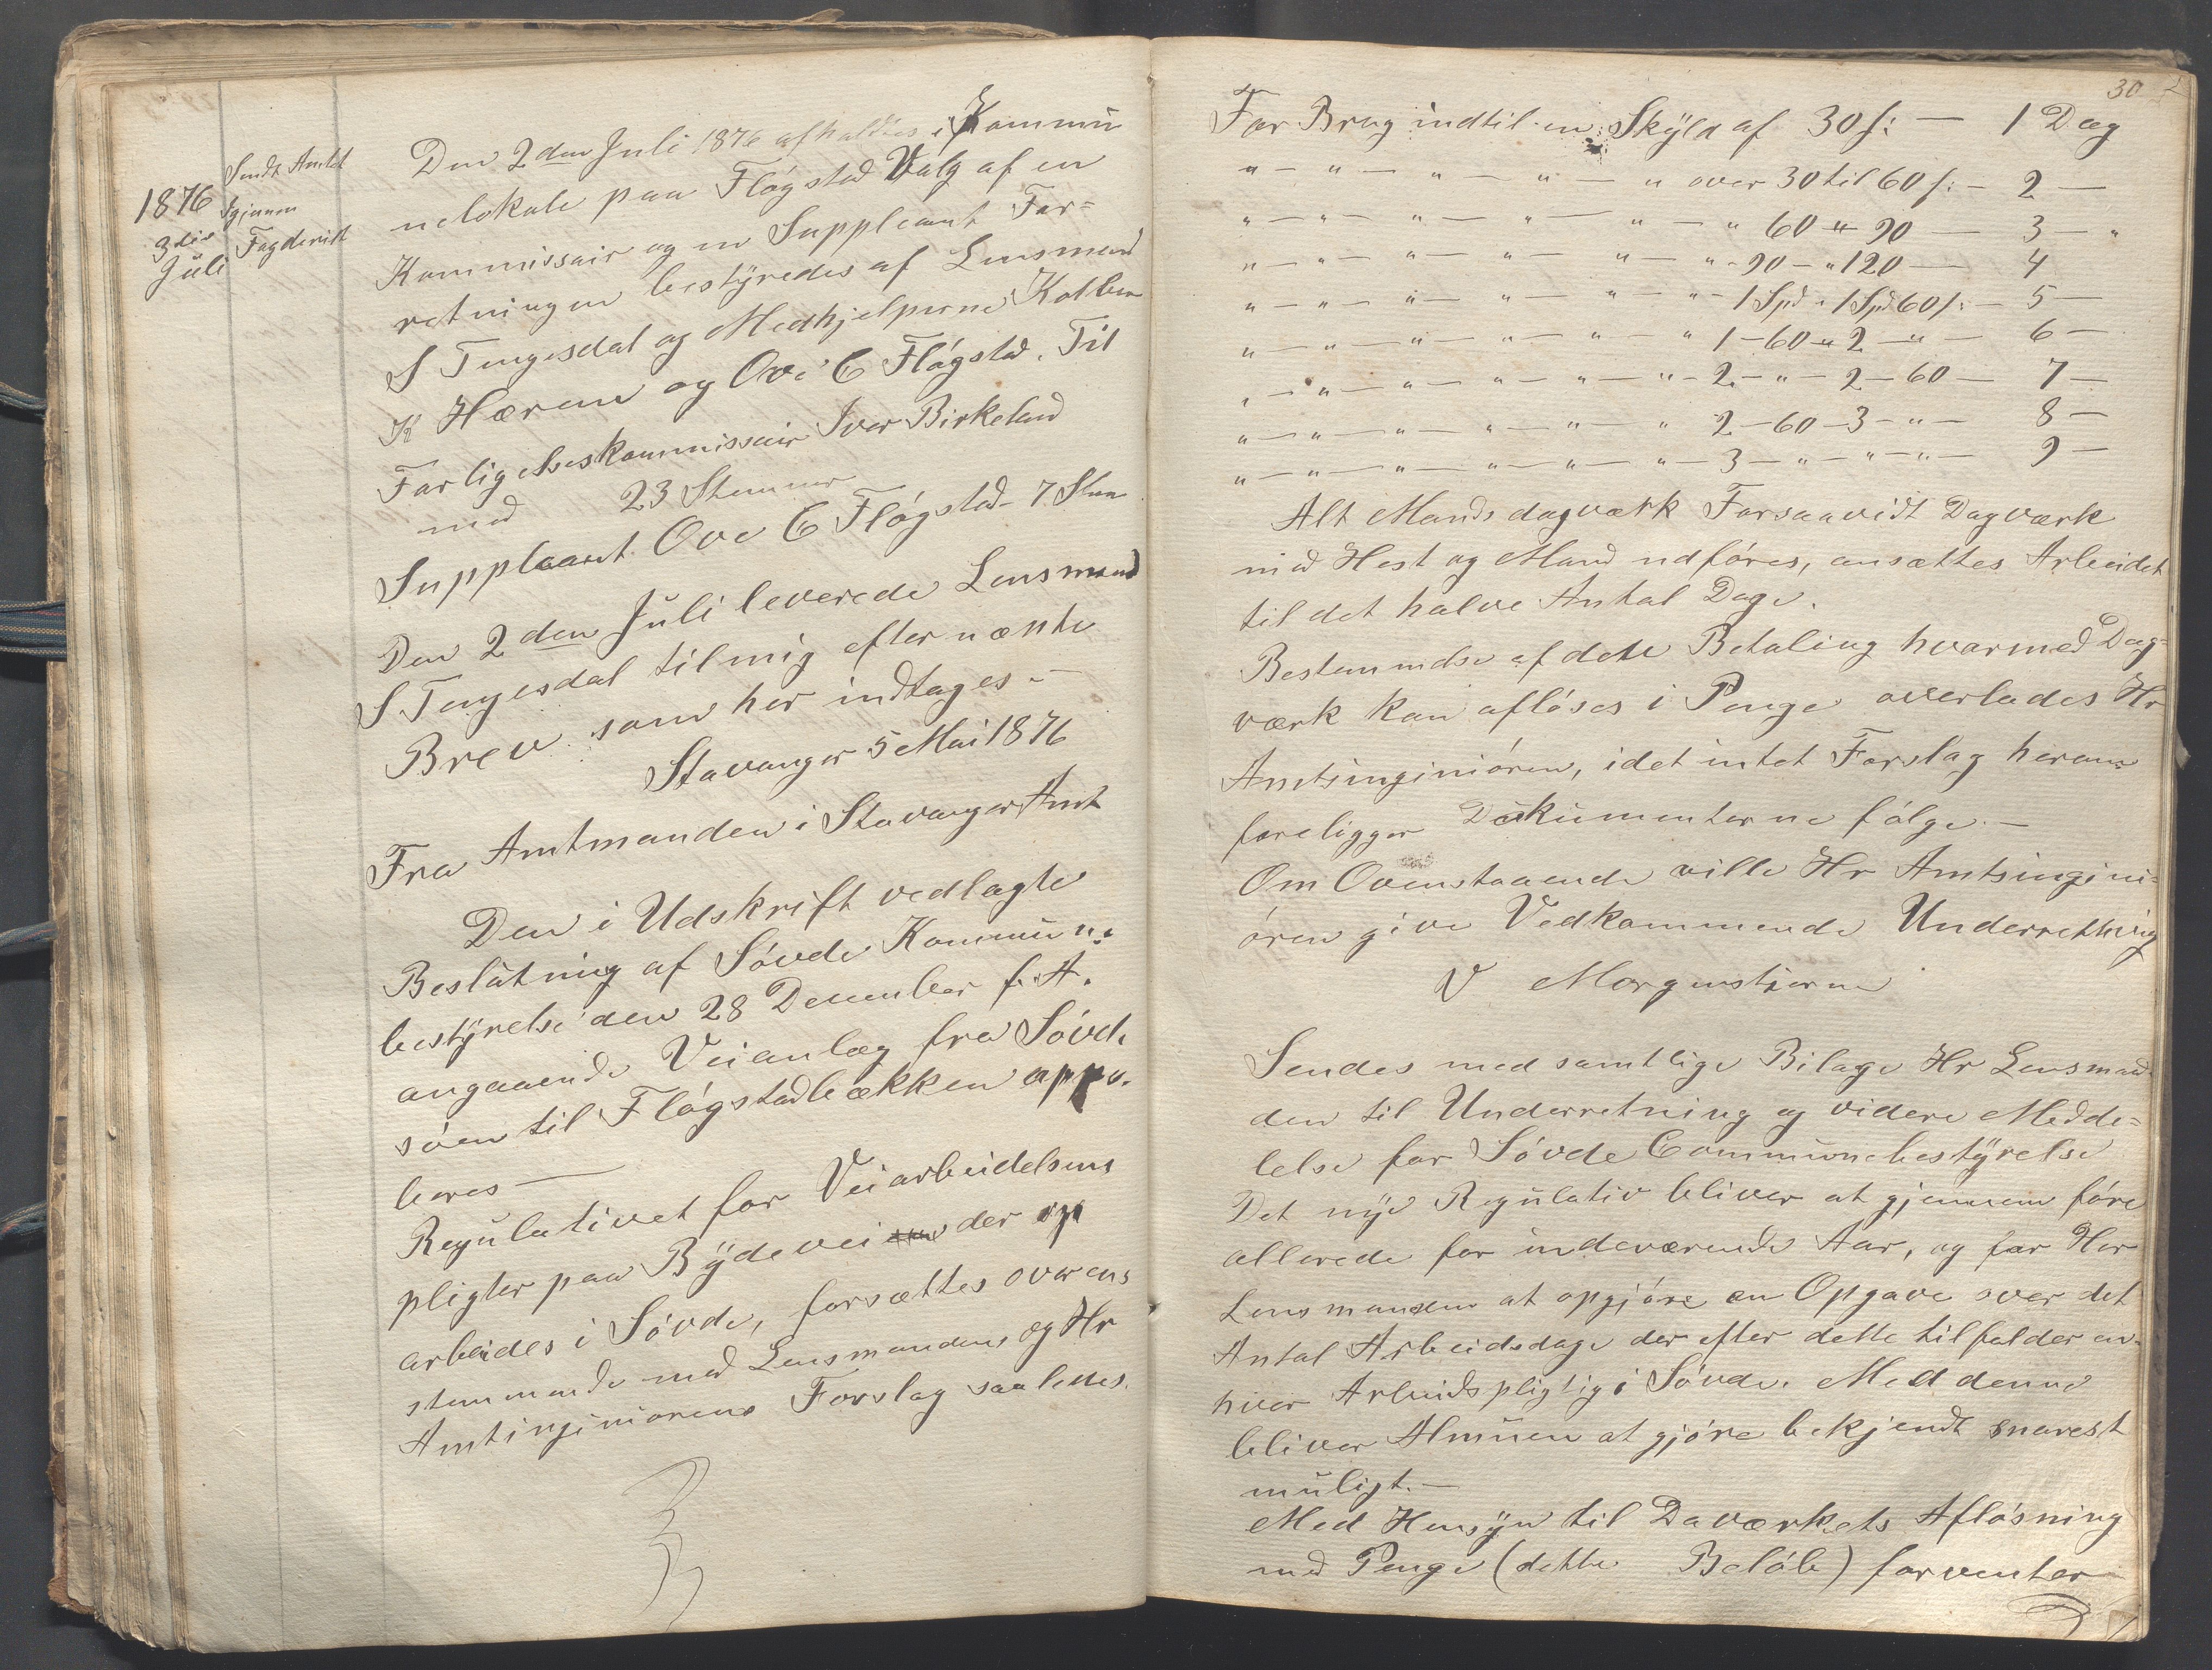 1876
3die
Juli
Sendt Amtet
Igjenem
Fogderiet
Den 2den Juli 1876 afholdtes i Kommu
nelokale paa Fløgstad Valg af en
Kommissair og en Suppleant For=
retningen bestyredes af Lensmand
S Tengesdal og Medhjelperne Kolben
K Hærem og Ove C Fløgstad. Til
Forligelseskommissair Iver Birkeland
med 23 Stemmer
Suppleant Ove C Fløgstad 7 Stem
Den 2den Juli leverede Lensmand
S Tengesdal til mig efternævnte
Brev som her indtages. —
Stavanger 5 Mai 1876
Fra Amtmanden i Stavanger Amt
Den i Udskrift vedlagte
Beslutning af Søvde Kommune
bestyrelse den 28 December f. A.
angaaende Veianlæg fra Søvde
søen til Fløgstadbækken appro.
beres —
Regulativet for Veiarbeidelsens
pligter paa Bygdevei der op
arbeides i Søvde, forsættes overens
stemmende med Lensmandens og Hr
Amtinginiørens Forslag saaledes.
30
For Brug indtil en Skyld af 30 s: — 1 Dag
" — " — " — " — " over 30 til 60 s: — 2 —
" — " — " — " — " 60 " 90 — 3 — "
" — " — " — " — " - 90 — " 120 — 4
" — " — " — " — " — " - 1 Spd " 1 Spd 60 s: — 5 —
" — " — " — " — " — " 1 — 60 " 2 — " — 6 —
" — " — " — " — " — " - 2 — " — 2 — 60 — 7 —
" — " — " — " — " — " 2 — 60 — 3 - " — 8 —
" — " — " — " — " — " — 3 — " — " — " — 9 —
Alt Mands dagværk Forsaavidt Dagværk
med Hest og Mand udføres, ansættes Arbeidet
til det halve Antal Dage.
Bestemmelse af dete Betaling hvormed Dag=
værk kan afløses i Penge overlades Hr
Amtsinginiøren, idet intet Forslag herom
foreligger Dokumenterne følge. —
Om Ovenstaaende ville Hr Amtsingini=
øren give Vedkommende Underretning
V Morgenstierne
Sendes med samtlige Bilage Hr Lensmand
den til Underretning og videre Medde=
lelse for Søvde Communebestyrelse
Det nye Regulativ bliver at gjennem føre
allerede for indeværende Aar, og faar Herr
Lensmanden at opgjøre en Opgave over det
Antal Arbeidsdage der efter dette tilfalder en=
hver Arbeidspligtig i Søvde. Med denne
bliver Almuen at gjøre bekjendt snarest
muligt. —
Med Hensyn til Daværkets Afløsning
med Penge (dette Beløb) forventer